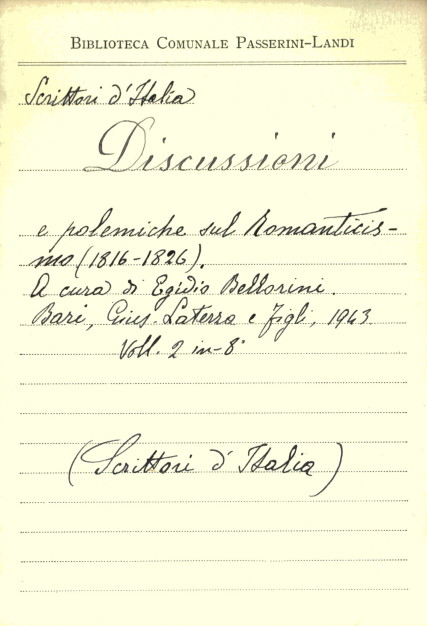 BIBLIOTECA COMUNALE PASSERINI-LANDI
Scrittori d'Italia
Discussioni
e polemiche sul Romanticis-
mo (1816-1826).
A cura di Egidio Bellorini.
Bari, Gius. Laterza e figli, 1943
Voll. 2 in-8°
(Scrittori d'Italia)